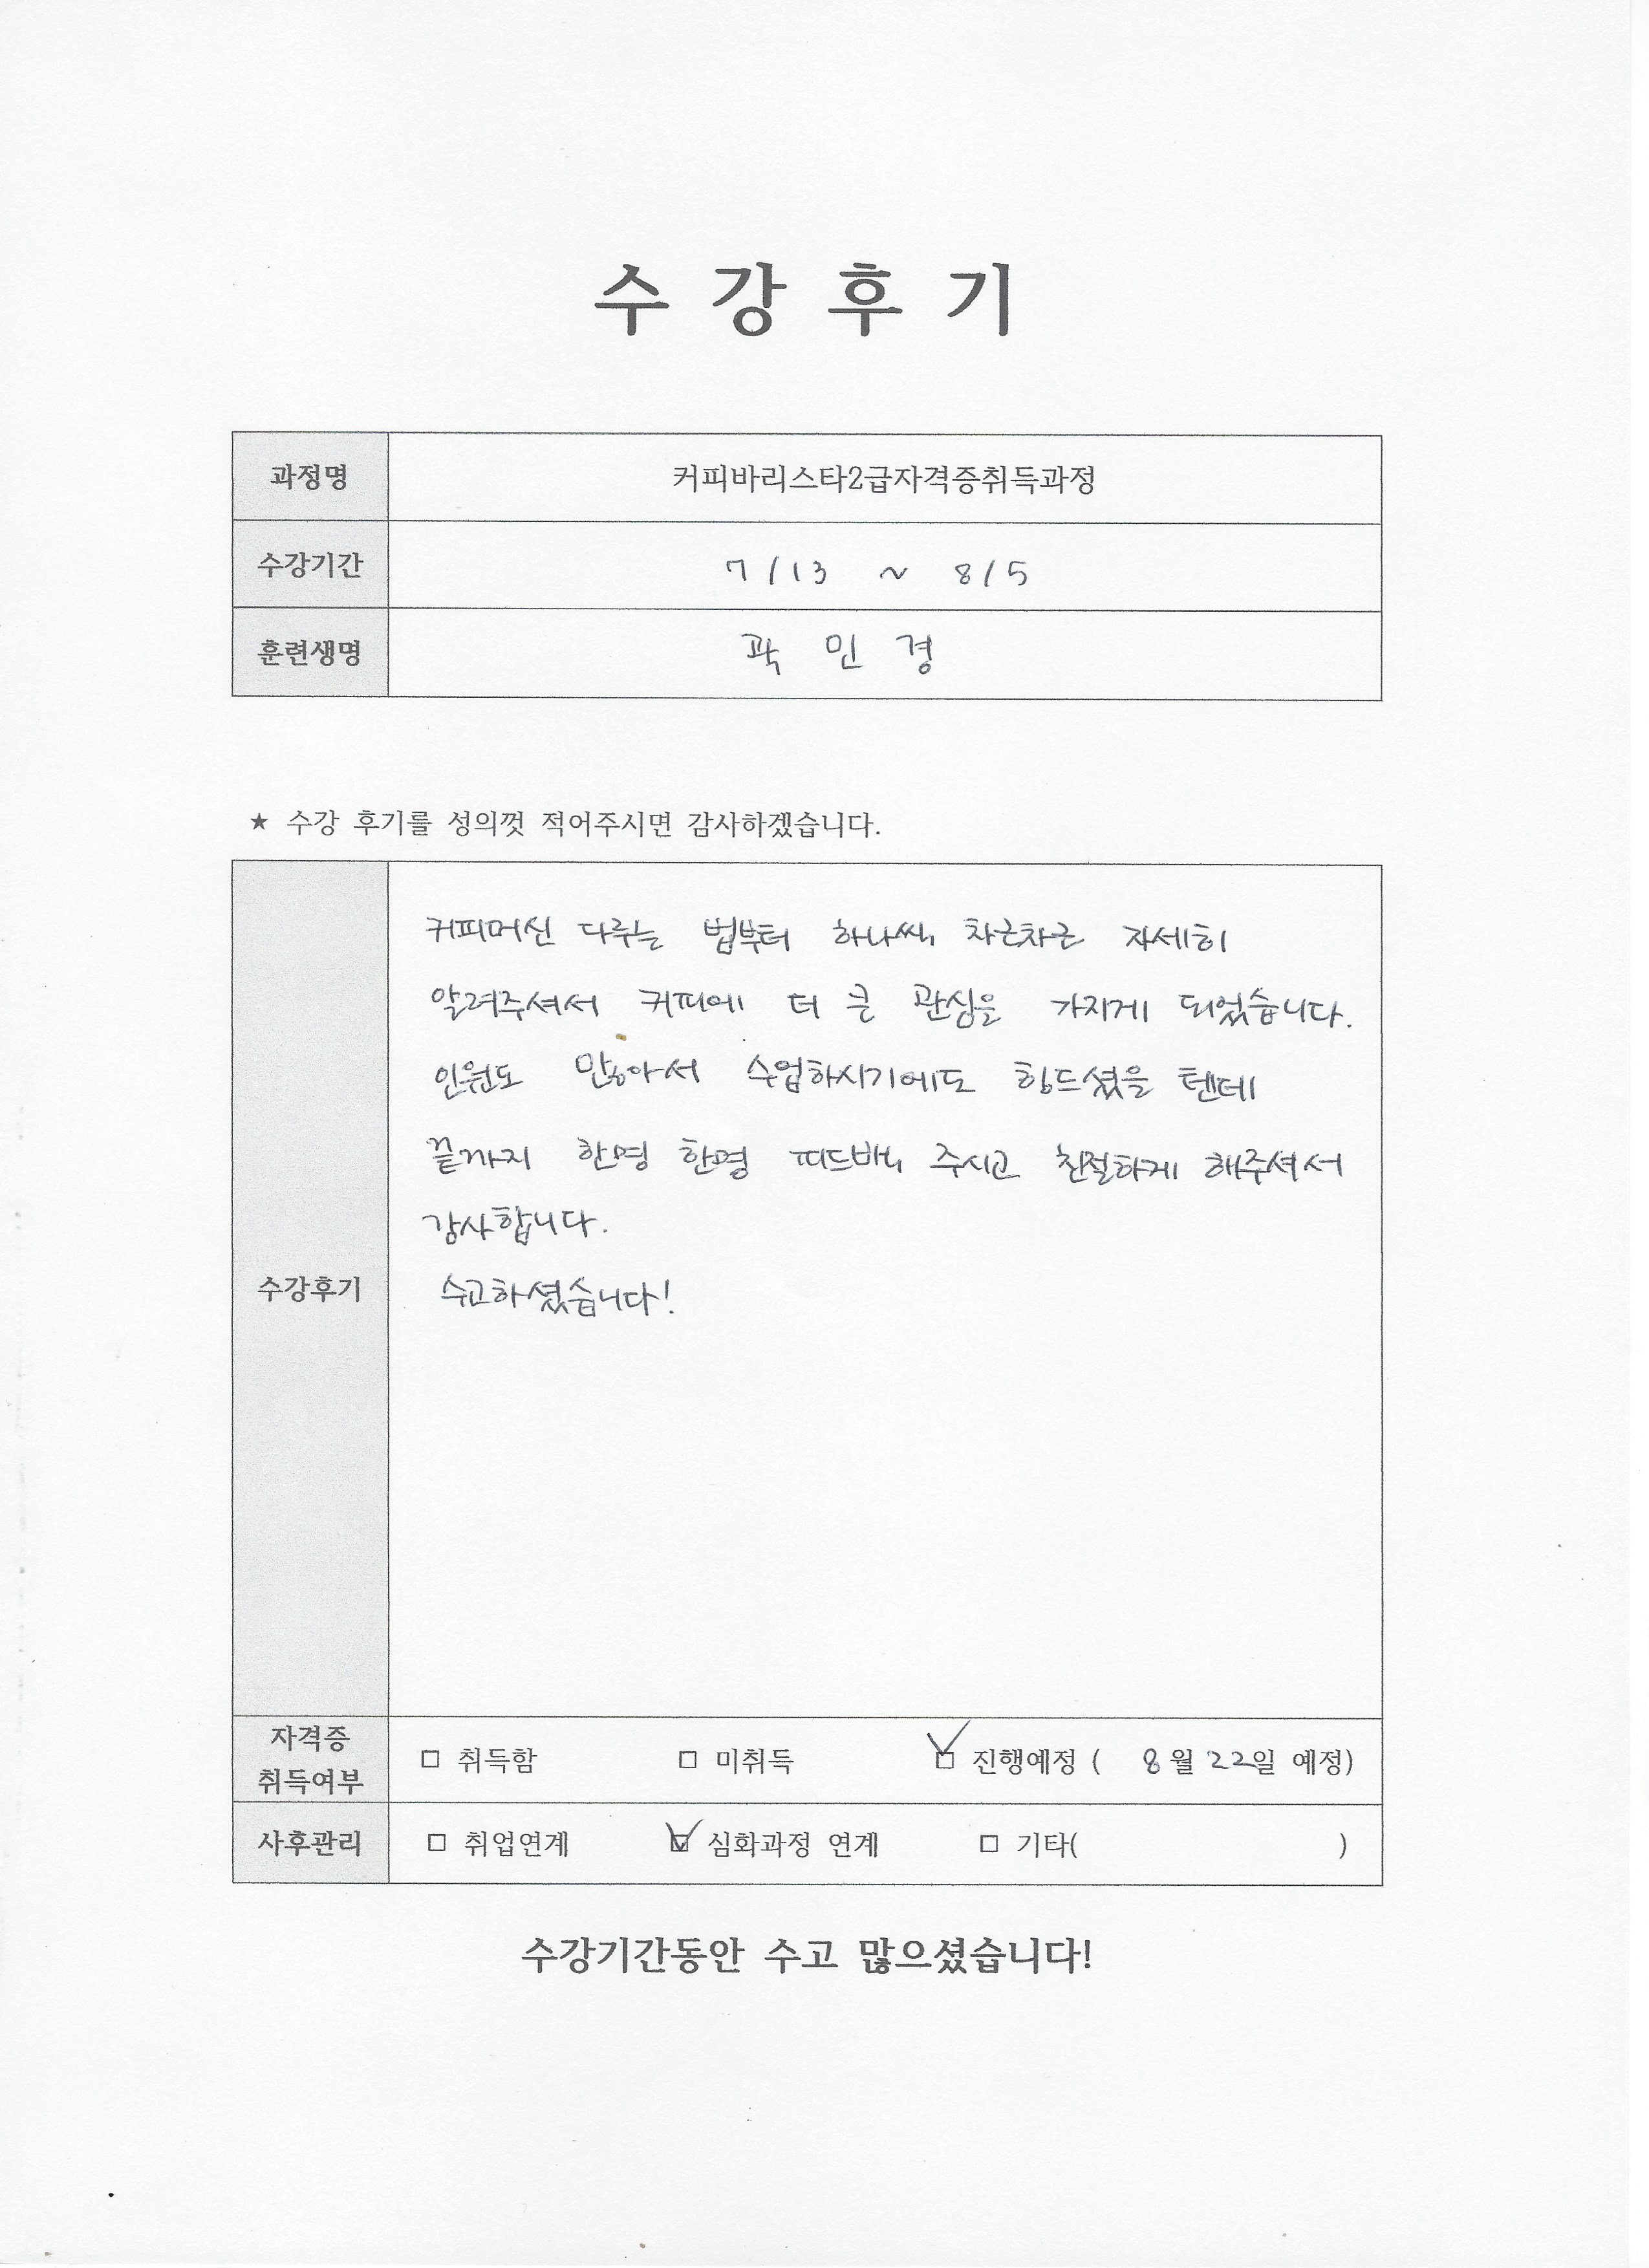 수 강 후 기
과정명 커피바리스타2급자격증취득과정
수강기간 7/13 ~ 8/5
훈련생명 곽 민 경
★ 수강 후기를 성의껏 적어주시면 감사하겠습니다.
수강후기
커피머신 다루는 법부터 하나씩 차근차근 자세히
알려주셔서 커피에 더 큰 관심을 가지게 되었습니다.
인원도 많아서 수업하시기에도 힘드셨을 텐데
끝까지 한명 한명 피드백 주시고 친절하게 해주셔서
감사합니다.
수고하셨습니다!
자격증
취득여부
□ 취득함 □ 미취득 ☑ 진행예정 ( 8월 22일 예정)
사후관리 □ 취업연계 ☑ 심화과정 연계 □ 기타( )
수강기간동안 수고 많으셨습니다!